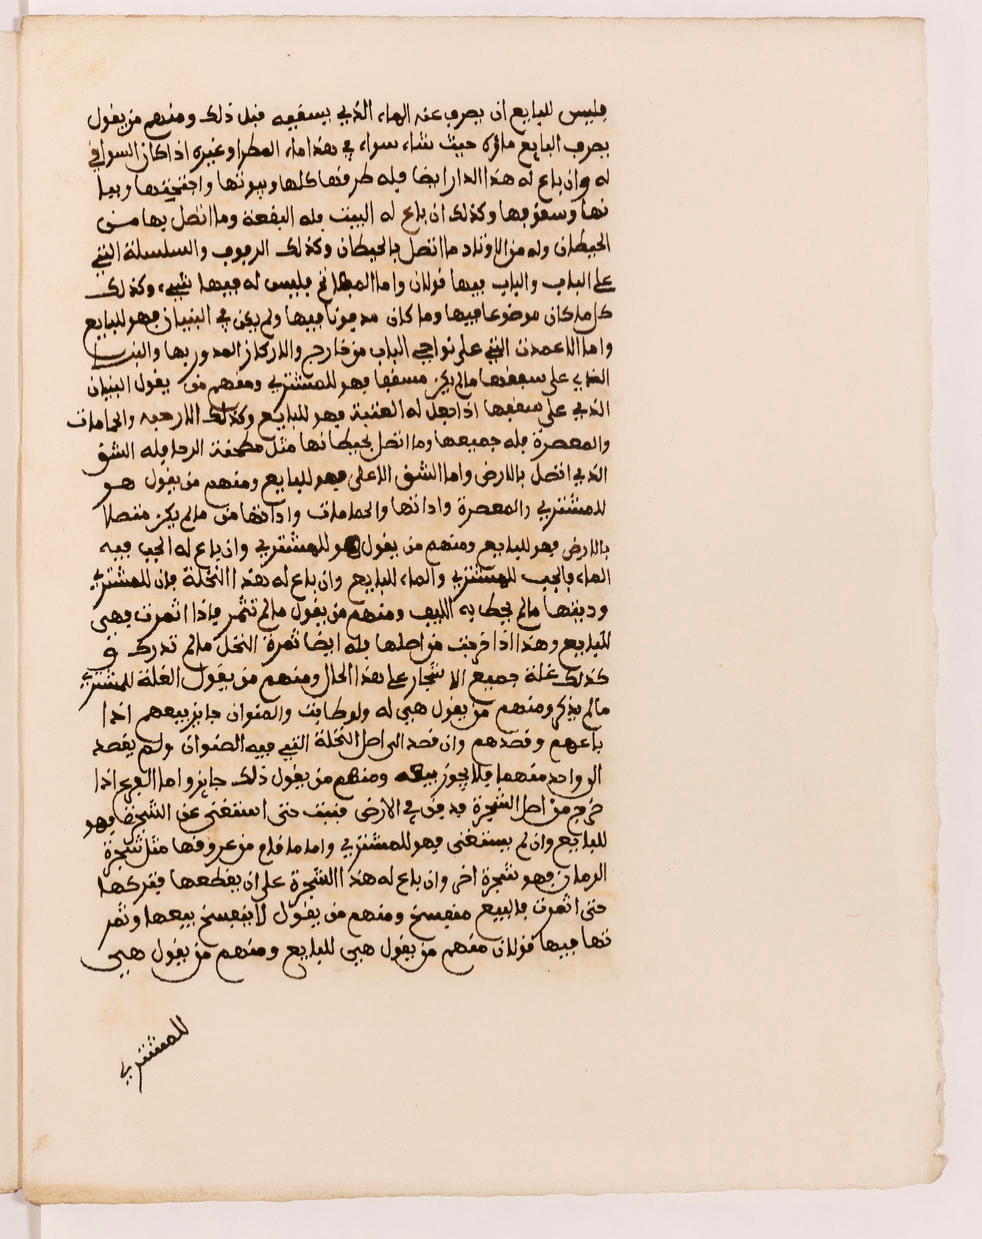 فليس للبايع ان يصرف عنه الماء الذي يسقيه قبل ذلك ومنهم من يقول
يصرف البايع ماؤه حيث شاء سواء في هذا ماء المطر او غيره اذا كان السواقي
له وان باع له هذا الدار ايضا فله طرقها كلها وبيوتها واجنحتها وبيا
نها وسقوفها وكذلك ان باع له البيت فله البقعة وما اتصل بها من
الحيطان وله من الاوتاد ما اتصل بالحيطان وكذلك الرفوف والسلسلة التي
على الباب والباب فيها قولان واما المفاتح فليس له فيها شيء وكذلك
كل ما كان موضوعا فيها وما كان مدفونا فيها ولم يكن في البنيان فهو للبايع
واما الاعمدة التي على نواحي الباب من خارج والاركان المدور بها والبنيان
الذي على سقفها ما لم يكن مسقفا فهو للمشتري ومنهم من يقول البنيان
الذي على سقفها اذا جعل له العتبة فهو للبايع وكذلك الارحية والحمامات
والمعصرة فله جميعها وما اتصل بحيطانها مثل مطحنة الرحا فله الشق
الذي اتصل بالارض واما الشق الاعلى فهو للبايع ومنهم من يقول هو
للمشتري والمعصرة واداتها والحمامات واداتها من ما لم يكن متصلا
بالارض فهو للبايع ومنهم من يقول هو للمشتري وان باع له الجب فيه
الماء فالجب للمشتري والماء للبايع وان باع له هذا النخلة فان للمشتري
وديتها ما لم يحط به الليف ومنهم من يقول ما لم تثمر فاذا اثمرت فهي
للبايع وهذا اذا خرجت من اصلها فله ايضا ثمرة النخل ما لم تدرك و
كذلك غلة جميع الاشجار على هذا الحال ومنهم من يقول الغلة للمشتري
ما لم يذكر ومنهم من يقول هي له ولو طابت والصنوان جايز بيعهم اذا
باعهم وقصدهم وان قصد الى اصل النخلة التي فيه الصنوان ولم يقصد
الى واحد منهما فلا يجوز بيعه ومنهم من يقول ذلك جايز واما الفرع اذا
خرج من اصل الشجرة فدفن في الارض فنبت حتى استغنى عن الشجرة فهو
للبايع وان لم يستغنى فهو للمشتري واما ما قام من عروقها مثل شجرة
الرمان فهو شجرة اخرى وان باع له هذا الشجرة على ان يقطعها فتركها
حتى اثمرت فالبيع منفسخ ومنهم من يقول لا ينفسخ بيعها وثمر
تها فيها قولان منهم من يقول هي للبايع ومنهم من يقول هي
للمشتري